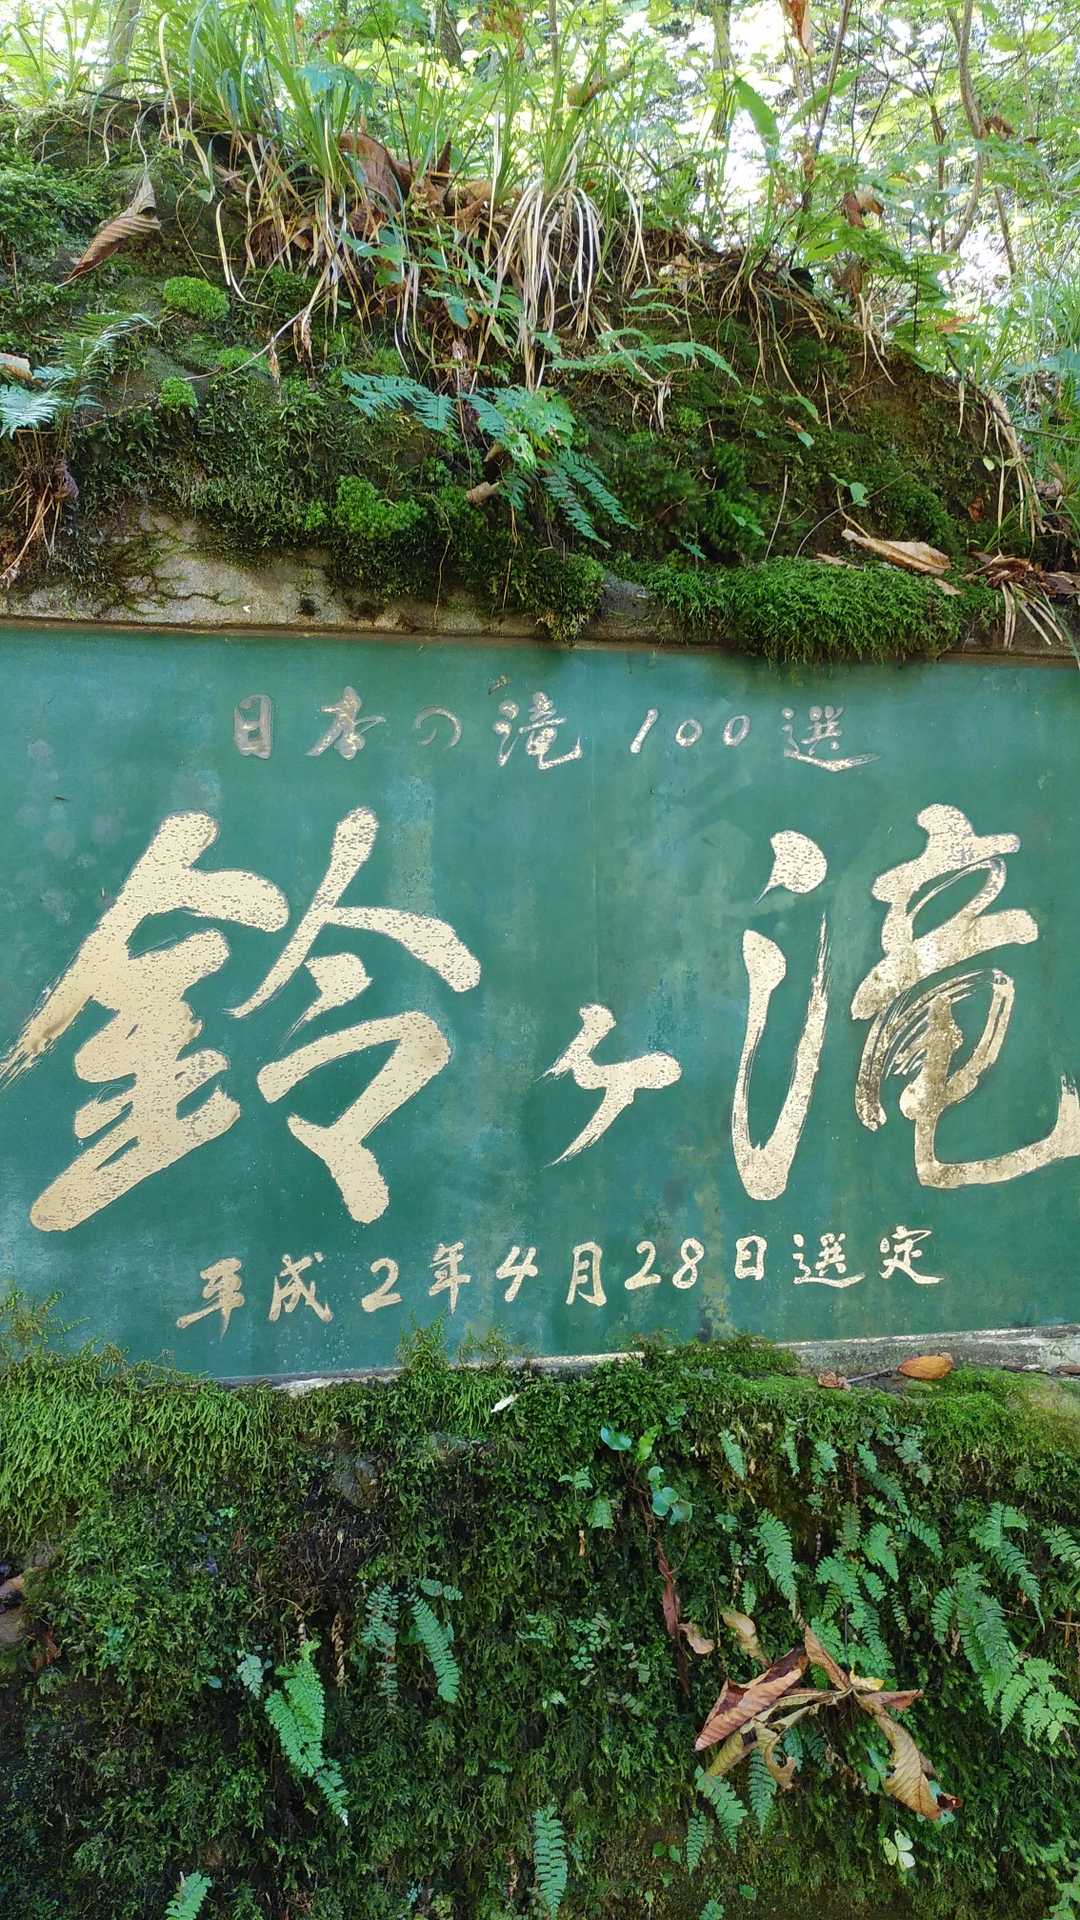 日本の滝100選
鈴ヶ滝
平成2年4月28日選定